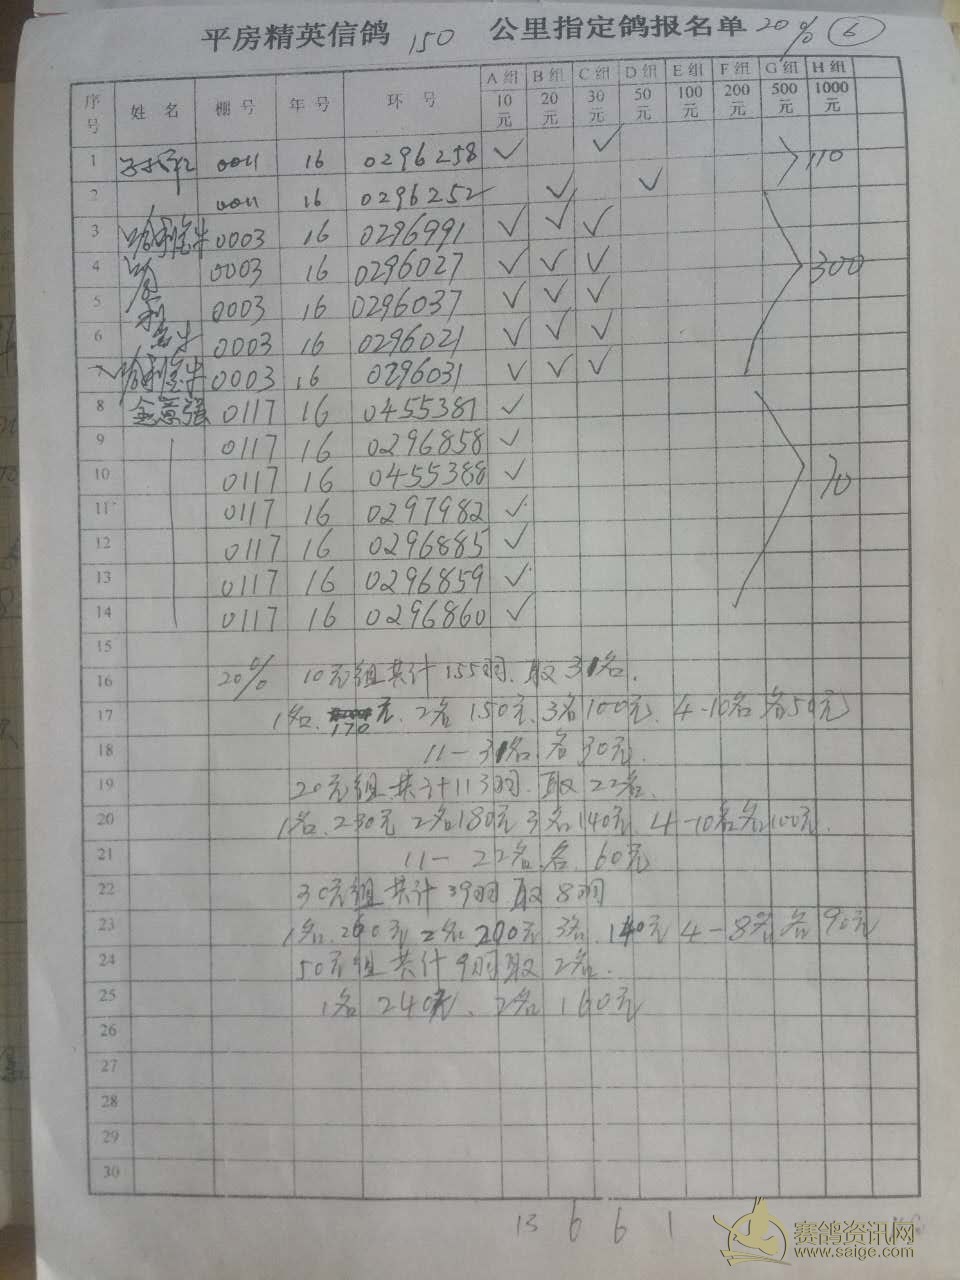 平房精英信鸽 150 公里指定鸽报名单 20% ⑥
序号 姓 名 棚 号 年 号 环 号 A组 10元 B组 20元 C组 30元 D组 50元 E组 100元 F组 200元 G组 500元 H组 1000元
1 0011 16 0296258 ✓ ✓ 110
2 0011 16 0296252 ✓ ✓
3 哈利金牛 0003 16 0296991 ✓ ✓ ✓
4 哈 0003 16 0296027 ✓ ✓ ✓ 300
5 利 0003 16 0296037 ✓ ✓ ✓
6 金牛 0003 16 0296021 ✓ ✓ ✓
哈利金牛 0003 16 0296031 ✓ ✓ ✓
8 金意强 0117 16 0455387 ✓
9 0117 16 0296858 ✓
10 0117 16 0455388 ✓ 70
11 0117 16 0297982 ✓
12 0117 16 0296885 ✓
13 0117 16 0296859 ✓
14 0117 16 0296860 ✓
15
16 20% 10元组共计155羽.取31名.
17 1名.170元.2名150元.3名100元.4-10名各50元
18 11-31名.各30元.
19 20元组共计113羽.取22名.
20 1名.230元 2名180元 3名140元.4-10名各100元.
21 11-22名.各.60元
22 30元组共计39羽.取8羽
23 1名.260元 2名200元 3名.140元 4-8名各90元
24 50元组共计9羽取2名.
25 1名240元、2名160元
26
27
28
29
30
13 6 6 1
赛鸽资讯网
www.saige.com